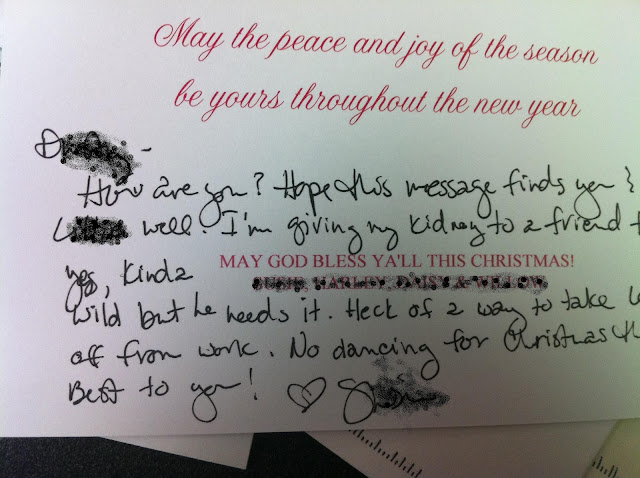 May the peace and joy of the season
be yours throughout the new year
How are you? Hope this message finds you &
well. I'm giving my kidney to a friend
yes, Kinda
MAY GOD BLESS YA'LL THIS CHRISTMAS!
HARLEY, DAISY &
wild but he needs it. Heck of a way to take
off from work. No dancing for Christmas
Best to you! ♡